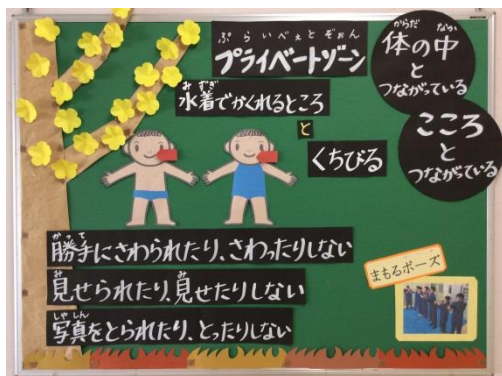 ぷらいべえとぞおん
プライベートゾーン
みずぎ
水着でかくれるところ
と
くちびる
からだ なか
体の中
と
つながっている
こころ
と
つながっている
かって
勝手にさわられたり、さわったりしない
み み
見せられたり、見せたりしない
しゃしん
写真をとられたり、とったりしない
まもるポーズ